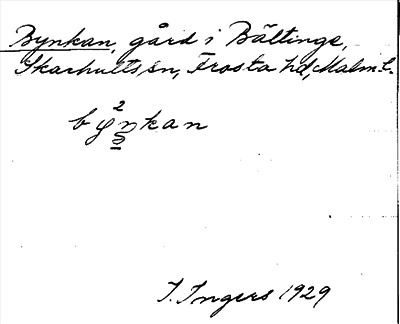 Bynkan, gård i Bältinge,
Skarhults sn, Frosta hd, Malm. L.
2
bynkan
I. Ingers 1929